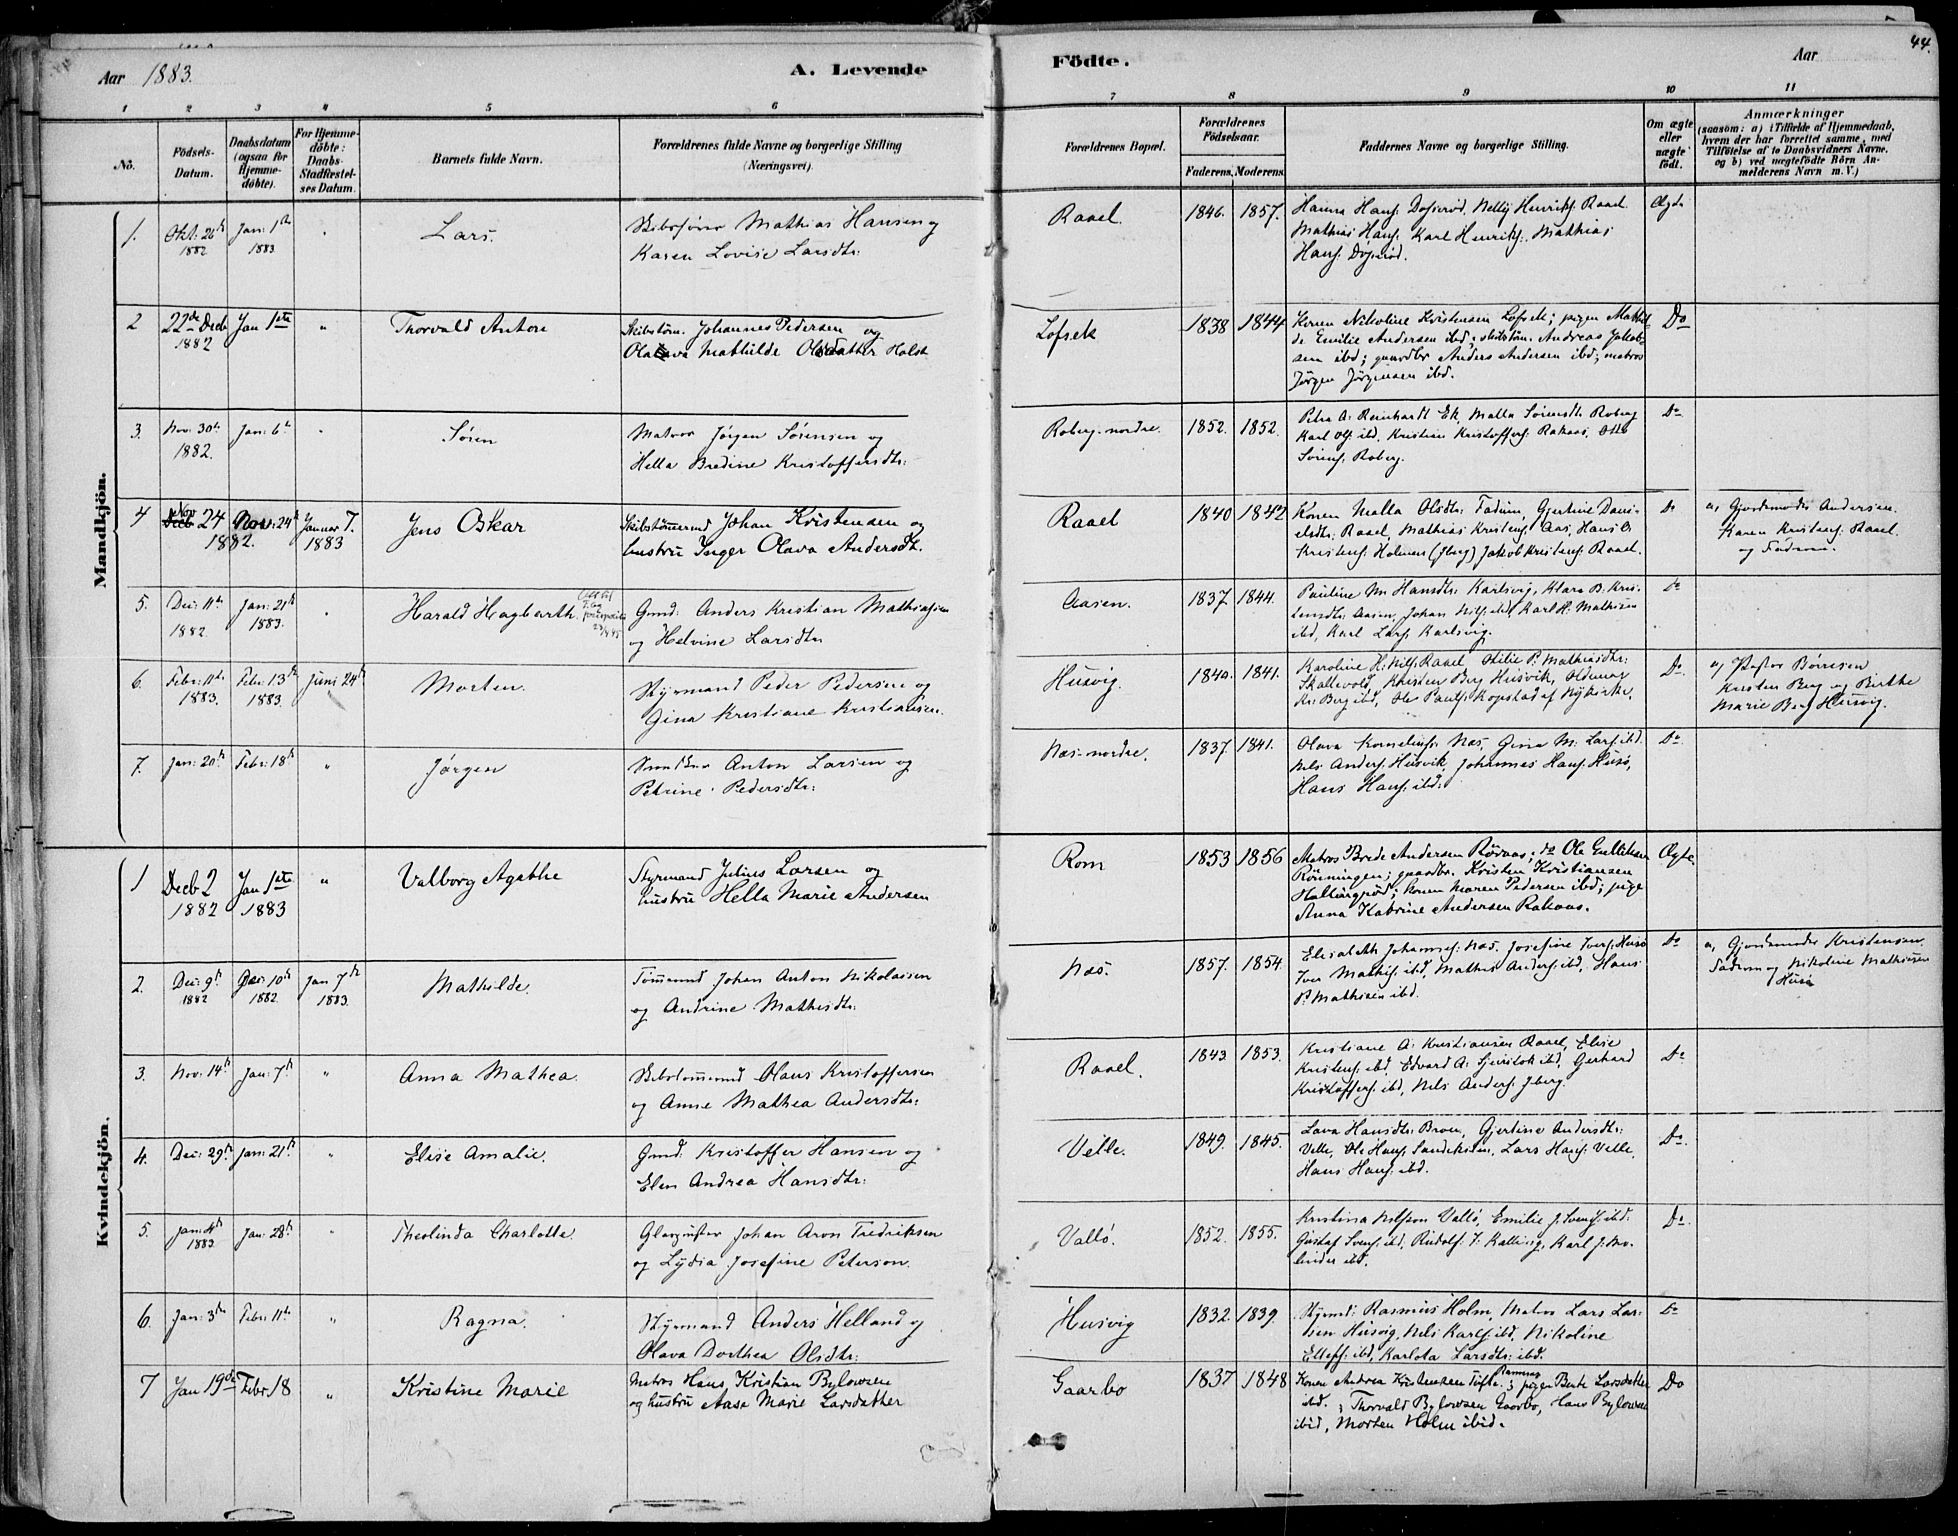 44.
Aar 1883.
A. Levende
Födte.
Aar
1 2 3 4 5 6 7 8 9 10 11
No.
Födsels-Datum.
Daabsdatum (ogsaa for Hjemme-döbte).
For Hjemme-döbte: Daabs-Stadfæstel-ses Datum.
Barnets fulde Navn.
Forældrenes fulde Navne og borgerlige Stilling (Næringsvei).
Forældrenes Bopæl.
Forældrenes Födselsaar.
Faderens. Moderens.
Faddernes Navne og borgerlige Stilling.
Om ægte eller uægte födt.
Anmærkninger
(saasom: a) i Tilfælde af Hjemmedaab,
hvem der har forrettet samme, med
Tilföielse af to Daabsvidners Navne,
og b) ved uægtefödte Börn An-
melderens Navn m. V.)
Mandkjön.
1. Okt: 26th 1882 Jan: 1th 1883 " Lars. Skibsfører Mathias Hansen og
Karen Lovise Larsdtr:
Raael. 1846. 1857. Hanna Hans: Døserød, Nelly Henriks: Raael
Mathias Hans: Karl Henriks:, Mathias
Hans: Døserød.
Ægte
2 22de Decb 1882 Jan 1ste " Thorvald Anton Skibstøm. Johannes Pedersen og
Olava Mathilde Olsdatter Holst
Lofsek 1838 1844 Konen Nikoline Kristensen Lofsek; pigen Mathil-
de Emilie Andersen ibd; skibstøm. Andreas Jakob-
sen ibd; gaardbr Anders Andersen ibd; matros
Jørgen Jørgensen ibd.
Do
3. Nov: 30th 1882. Jan: 6th " Søren Matros Jørgen Sørensen og
Hella Bredine Kristoffersdtr:
Roberg nordre. 1852. 1852. Petra A: Reinhardt Ek, Malla Sørensdtr Roberg
Karl Ols: ibd, Kristine Kristoffers: Rakaas, Otto
Sørens: Roberg.
Do
4 Nov 24 Nov: 24th 1882. Januar 7. 1883 Jens Oskar Skibstømermd Johan Kristensen og
hustru Inger Olava Andersdt.
Raael 1840 1842 Konen Malla Olsdtr: Fadum, Gjertine Dani-
elsdtr: Raael, Mathias Kristens: Aas, Hans O.
Kristens: Holmen (Jberg) Jakob Kristens: Raael.
Do
a, Gjordemoder Andersen.
Karen Kristens: Raael
og Fadum.
5. Dec: 11th 1882. Jan: 21th 1883. " Harald Hagbarth. Gmd: Anders Kristian Mathiassen
og Helvine Larsdtr
Aasen. 1837. 1844. Pauline M: Hansdtr: Karlsvig, Klara B. Kris-
tensdtr: Aasen, Johan Nils: ibd, Karl H: Mathisen
ibd, Karl Lars: Karlsvig.
Do
6. Febr: 11th 1883. Febr: 13th 1883. Juni 24th Morten. Styrmand Peder Pedersen og
Gina Kristiane Kristiansen.
Husvig. 1840. 1841. Karoline H: Nils: Raael, Otilie P: Mathiasdtr:
Skallevold, Kristen Berg Husvik, Oldemar
Kr: Berg ibd, Ole Pauls: Kopstad af Nykirke.
Do
a, Pastor Børresen
Kristen Berg og Birthe
Marie Berg Husvig.
7. Jan: 20th Febr: 18th " Jørgen Anton Larsen og
Petrine Pedersdtr:
Næs nordre. 1837. 1841. Olava Kornelius: Næs, Gina M: Lars: ibd.
Nils Anders: Husvik, Johannes Hans: Husø,
Hans Hans: ibd:
Do
Kvindekjön.
1 Decb 2 1882 Jan 1ste 1883 " Valborg Agathe Styrmand Julius Larsen og
hustru Hella Marie Andersen
Rom 1853 1856 Matros Brede Andersen Röraas; do Ole Gulliksen
Rönningen; gaardbr. Kristen Kristiansen
Haltingröd; konen Maren Pedersen ibd; pige
Anna Katrine Andersen Rakaas.
Ægte
2. Dec: 9th 1882 Dec: 10th 1882. Jan 7th 1883. Mathilde. Tømmermd Johan Anton Nikolaisen
og Andrine Mathisdtr:
Næs. 1857. 1854. Elisabeth Johannes: Næs. Josefine Ivers: Husø
Iver Mathis: ibd, Mathis Anders: ibd, Hans
P: Mathisen ibd.
Do
a, Gjordemoder Kristensen.
Fadum og Nikoline Mathisen
Husø
3. Nov: 14th Jan: 7th " Anna Mathea. Skibstømmermd Olaus Kristoffersen
og Anne Mathea Andersdtr:
Raael. 1843. 1853. Kristiane A: Kristiansen Raael, Elise
Kristens: ibd, Edvard A: ibd, Gerhard
Kristoffers: ibd, Nils Anders: Jberg.
Do
4. Dec: 29th Jan: 21th " Elise Amalie. Gmd: Kristoffer Hansen og
Elen Andrea Hansdtr:
Velle. 1849. 1845. Lava Hansdtr: Broen, Gjertine Andersdtr:
Velle, Ole Hans: Lars Hans: Velle,
Hans Hans: ibd.
Do
5. Jan: 4th 1883 Jan: 28th " Theolinda Charlotte Glaspuster Johan Aron Fredriksen
og Lydia Josefine Peterson.
Vallø. 1852. 1855. Kristina Nilson Vallø, Emilie J: Svens: ibd.
Gustaf Svens: ibd, Rudolf J: Karl J: Mo-
linder ibd.
Do
6. Jan: 3th Febr: 11th " Ragna. Styrmand Anders Helland og
Olava Dorthea Olsdtr:
Husvig 1832. 1839. Styrmd: Rasmus Holm, Matros Lars Lar-
sen Husvig, Nils Karls: ibd, Nikoline
Ellefs: ibd, Karlota Larsdtr: ibd.
Do
7 Jan 19de Febr. 18 " Kristine Marie Matros Hans Kristian Bylowsen
og hustru Aase Marie Larsdatter
Gaarbo 1837 1848 Konen Andrea Kristensen Tufte; pigen Berte Larsdatter
ibd. ; Thorvald Bylowsen Gaarbo, Hans Bylowsen
ibid, Morten Holm ibid.
Do